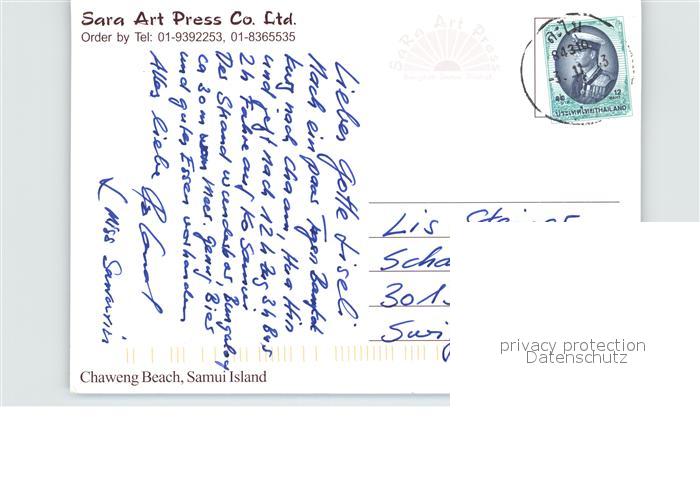 Sara Art Press Co. Ltd.
Order by Tel: 01-9392253, 01-8365535
SaRa Art Press
Liebes Gotte Liseli
Nach ein paar Tagen Bangkok
kurz nach Chaam, Hua Hin
und jetzt nach 12 h Zug 3 h Bus
2 h Fähre auf Ko Samui
Der Strand wunderbar, Bungalow
ca 30 m vom Meer. Genug Bier
und gutes Essen vorhanden
Alles Liebe
Miss
84310
12
ประเทศไทย THAILAND
Lis
Scha
301
Chaweng Beach, Samui Island
privacy protection
Datenschutz